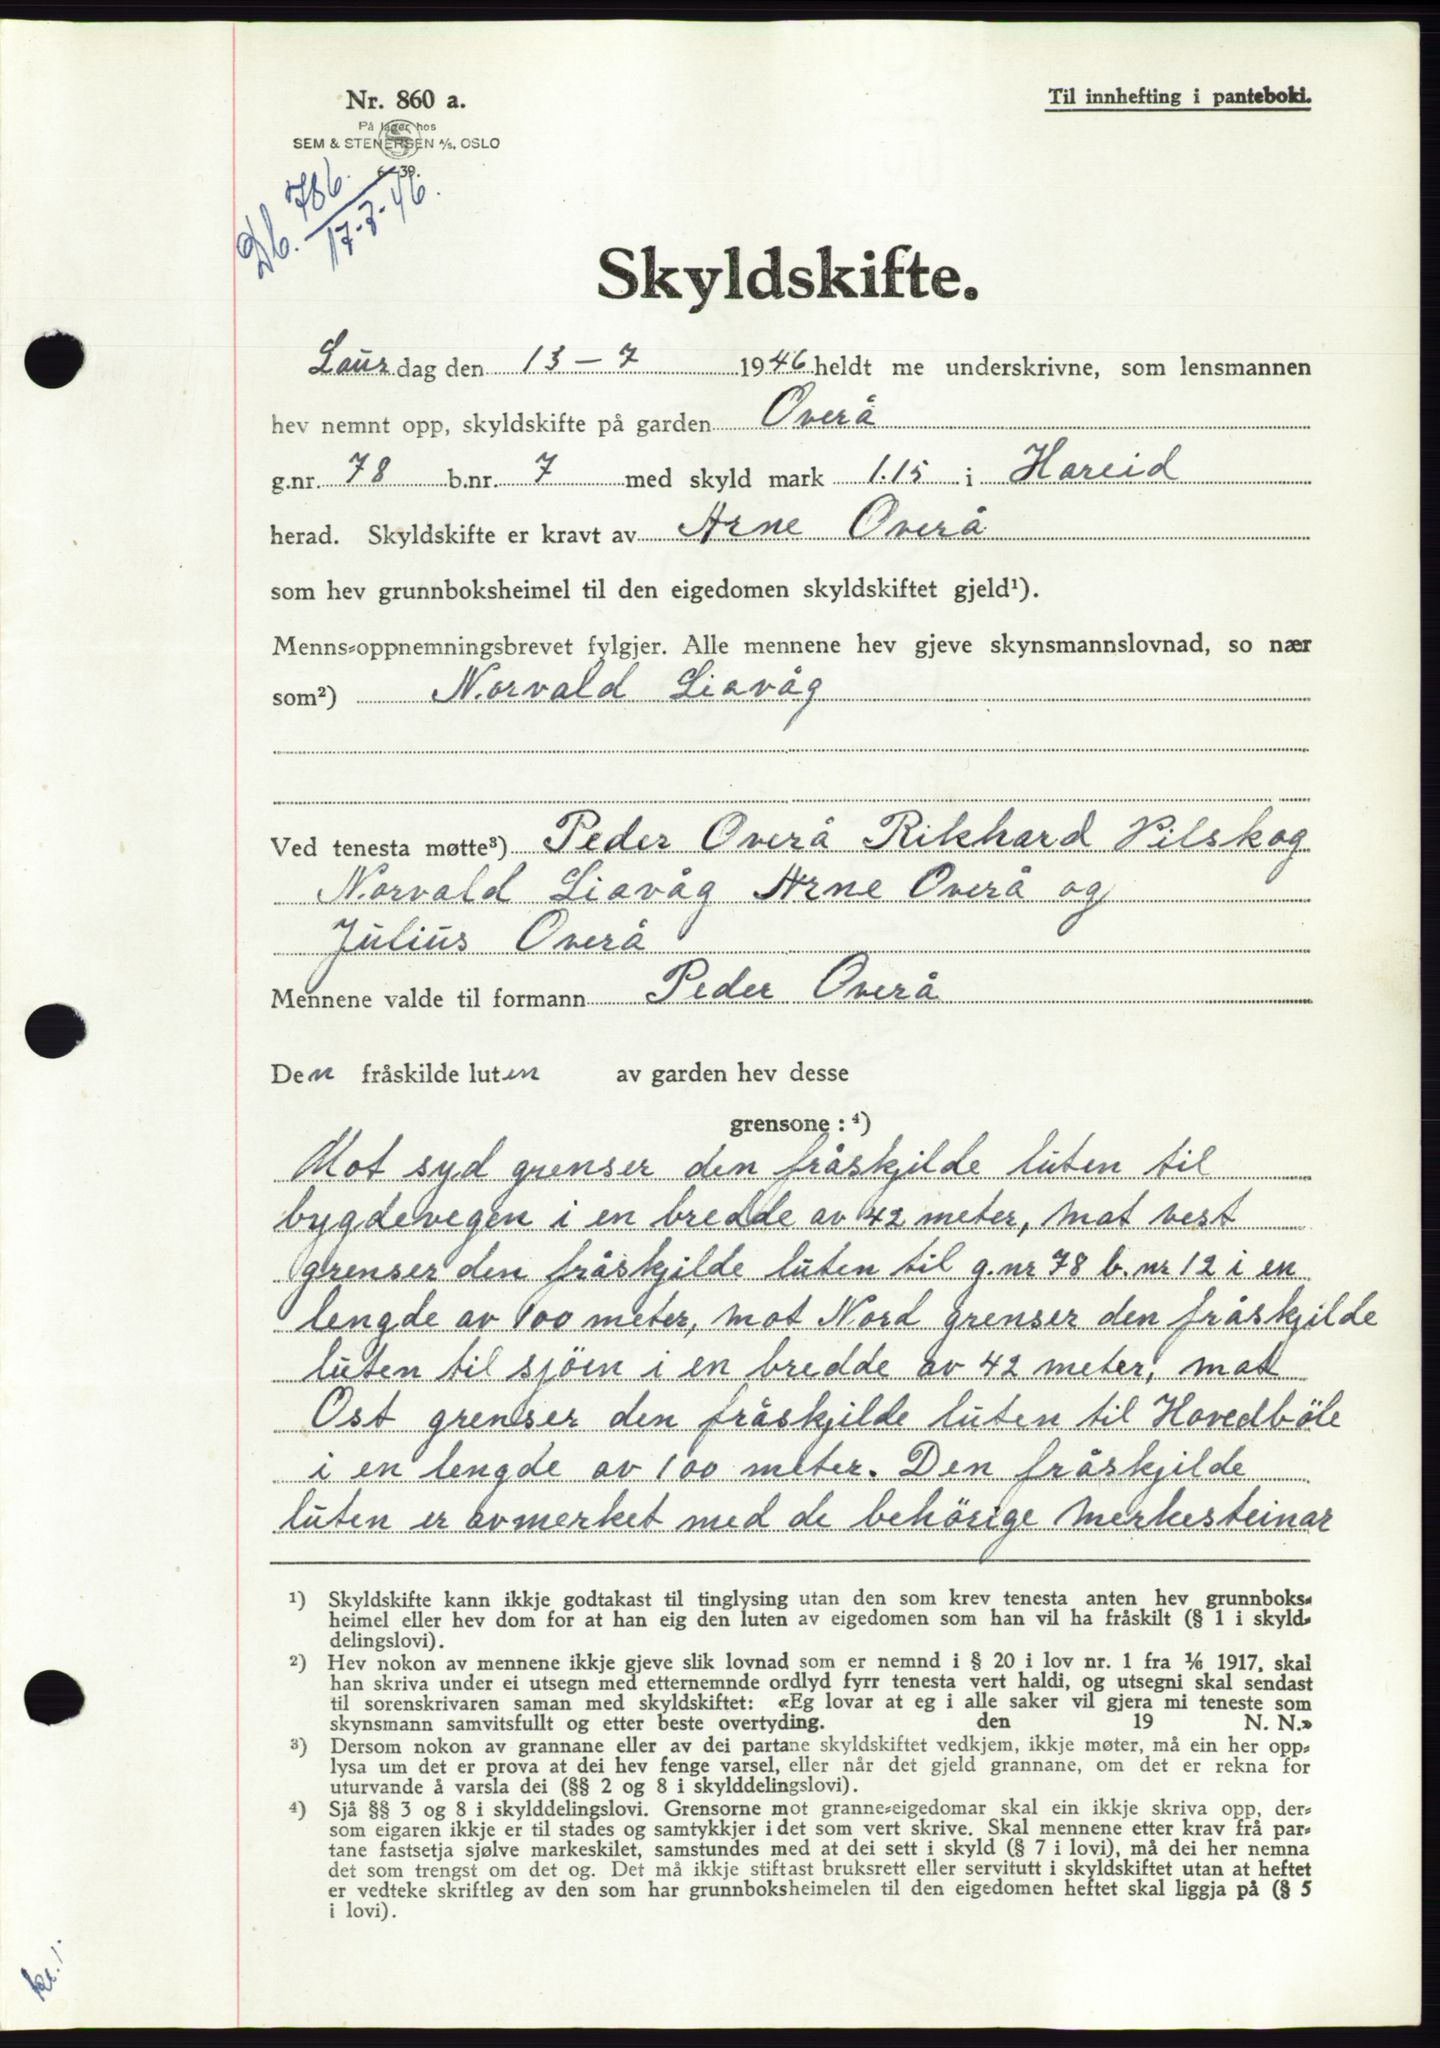 Nr. 860 a.
Til innhefting i panteboki.
På lager hos
SEM & STENERSEN A/S, OSLO
6—39.
Db. 786.
17-7-46.
Skyldskifte.
Laurdag den 13 - 7 1946 heldt me underskrivne, som lensmannen
hev nemnt opp, skyldskifte på garden Overå
g.nr. 78 b.nr. 7 med skyld mark 1.15 i Hareid
herad. Skyldskifte er kravt av Arne Overå
som hev grunnboksheimel til den eigedomen skyldskiftet gjeld¹).
Menns-oppnemningsbrevet fylgjer. Alle mennene hev gjeve skynsmannslovnad, so nær
som²) Norvald Liavåg
Ved tenesta møtte³) Peder Overå Rikhard Pilskog
Norvald Liavåg Arne Overå og
Julius Overå
Mennene valde til formann Peder Overå
Den fråskilde luten av garden hev desse
grensone : ⁴)
Mot syd grenser den fråskjilde luten til
bygdevegen i en bredde av 42 meter, mot vest
grenser den fråskjilde luten til g.nr 78 b.nr 12 i en
lengde av 100 meter, mot Nord grenser den fråskjilde
luten til sjöen i en bredde av 42 meter, mot
Ost grenser den fråskjilde luten til Hovedböle
i en lengde av 100 meter. Den fråskjilde
luten er avmerket med de behörige merkesteinar
¹) Skyldskifte kann ikkje godtakast til tinglysing utan den som krev tenesta anten hev grunnboks-
heimel eller hev dom for at han eig den luten av eigedomen som han vil ha fråskilt (§ 1 i skyld-
delingslovi).
²) Hev nokon av mennene ikkje gjeve slik lovnad som er nemnd i § 20 i lov nr. 1 fra 1/6 1917, skal
han skriva under ei utsegn med etternemnde ordlyd fyrr tenesta vert haldi, og utsegni skal sendast
til sorenskrivaren saman med skyldskiftet: «Eg lovar at eg i alle saker vil gjera mi teneste som
skynsmann samvitsfullt og etter beste overtyding. den 19 N. N.»
³) Dersom nokon av grannane eller av dei partane skyldskiftet vedkjem, ikkje møter, må ein her opp-
lysa um det er prova at dei hev fenge varsel, eller når det gjeld grannane, om det er rekna for
uturvande å varsla dei (§§ 2 og 8 i skylddelingslovi).
⁴) Sjå §§ 3 og 8 i skylddelingslovi. Grensorne mot granne-eigedomar skal ein ikkje skriva opp, der-
som eigaren ikkje er til stades og samtykkjer i det som vert skrive. Skal mennene etter krav frå par-
tane fastsetja sjølve markeskilet, samstundes med at dei sett i skyld (§ 7 i lovi), må dei her nemna
det som trengst om det og. Det må ikkje stiftast bruksrett eller servitutt i skyldskiftet utan at heftet
er vedteke skriftleg av den som har grunnboksheimelen til den eigedomen heftet skal liggja på (§ 5
i lovi).